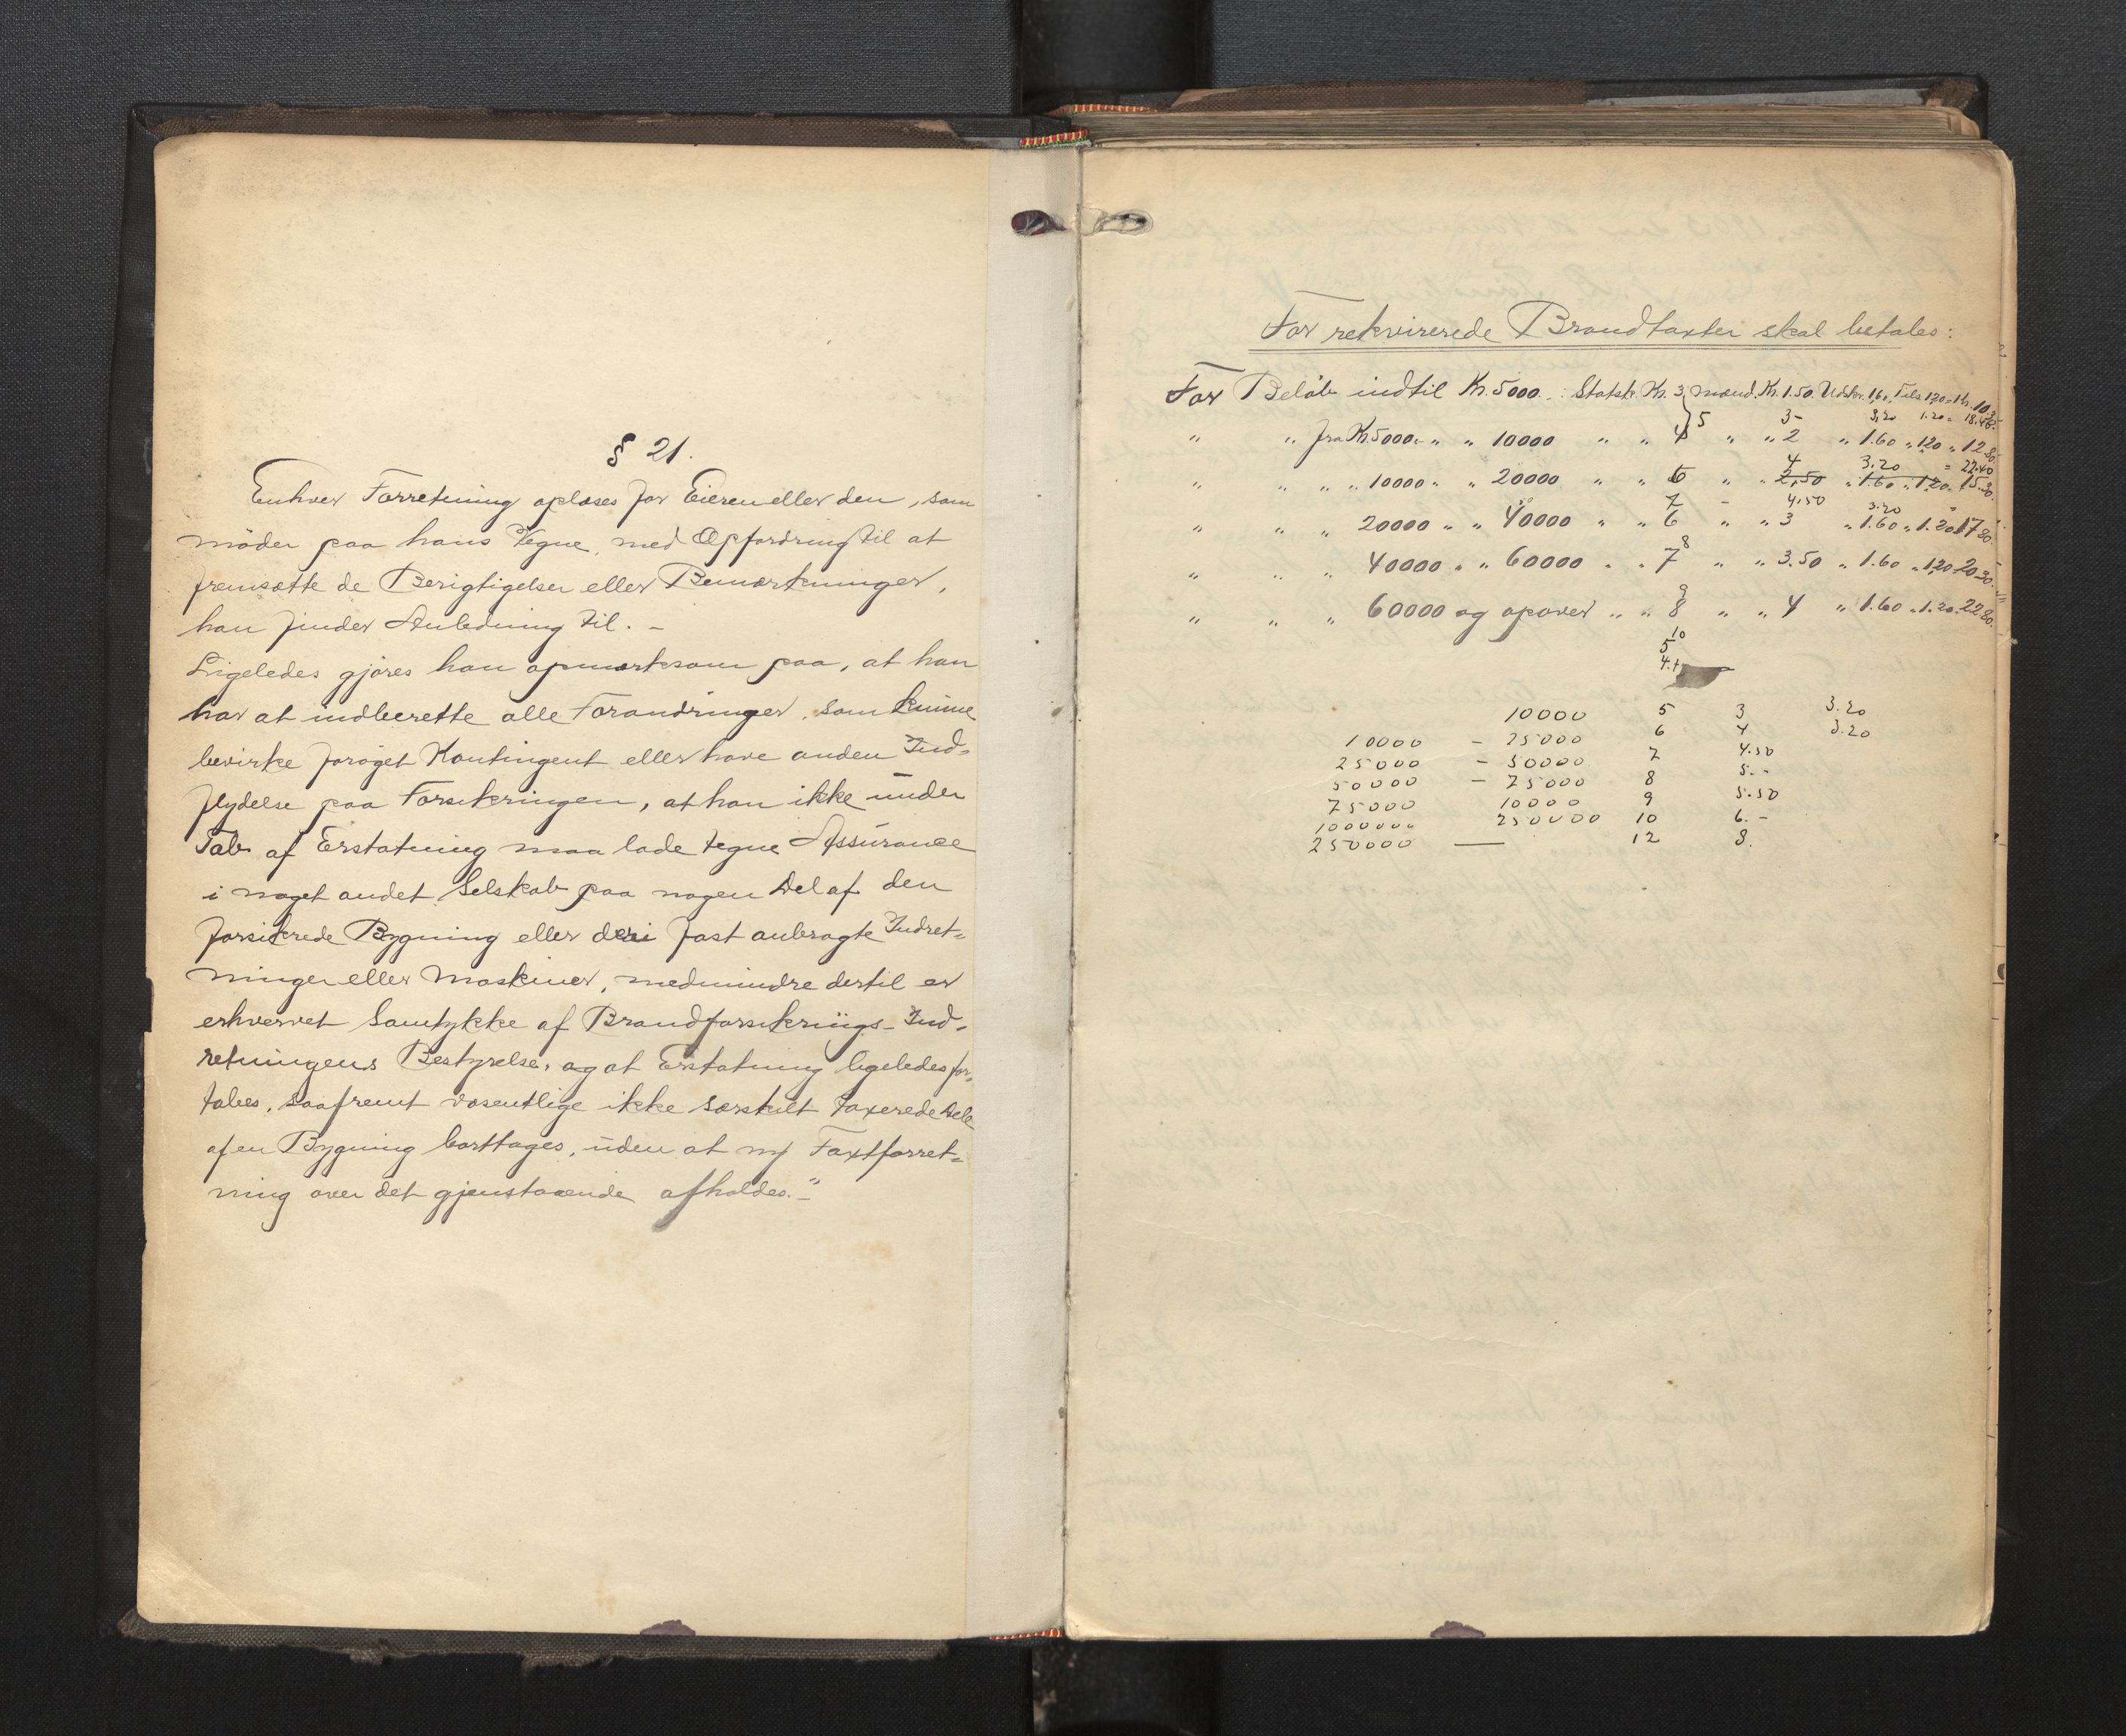 § 21.
Enhver Forretning oplæses for Eieren eller den, som
møder paa hans Vegne, med Opfordring til at
fremsætte de Berigtigelser eller Bemærkninger,
han finder Anledning til. –
Ligeledes gjøres han opmærksom paa, at han
har at indberette alle Forandringer, som kunne
bevirke forøget Kontingent eller have anden Ind-
flydelse paa Forsikringen, at han ikke under
Tab af Erstatning maa lade tegne Assurance
i noget andet Selskab paa nogen Del af den
forsikrede Bygning eller deri fast anbragte Indret-
ninger eller Maskiner, medmindre dertil er
erhvervet Samtykke af Brandforsikrings-Ind-
retningens Bestyrelse, og at Erstatning ligeledes for-
tabes, saafremt væsentlige ikke særskilt taxerede Dele
af en Bygning borttages, uden at ny Taxtforret-
ning over det gjenstaaende afholdes."–
For rekvirerede Brandtaxter skal betales:
For Beløb indtil Kr. 5000.: Statsk. Kr. 3, mænd. Kr. 1.50. Udskr. 1.60, Fels 1.20 = Kr. 10.30
5 3 3.20 1.20 =
" " fra Kr 5000 - " " 10000 " " 4 " " 2 " 1.60 " 1.20 " 12.80
4 3.20 = 22.40
" " " " 10000 " " 20000 " " 5 " " 2,50 " 1.60 " 1.20 " 15.30
7 - 4.50 3.20
" " " 20000 " " 40000 " " 6 " " 3 " 1.60 " 1.20 " 17.80
8
" " " 40000 " " 60000 " " 7 " " 3.50 " 1.60 " 1.20 " 20.30
9
" " " 60000 og opover " " 8 " " 4 " 1.60 " 1.20 " 22.80
10
5
10000 5 3 3.20
10000 – 25000 6 4 3.20
25000 – 50000 7 4.50
50000 – 75000 8 5.-
75000 10000 9 5.50
1000000 250000 10 6.-
250000 — 12 8.